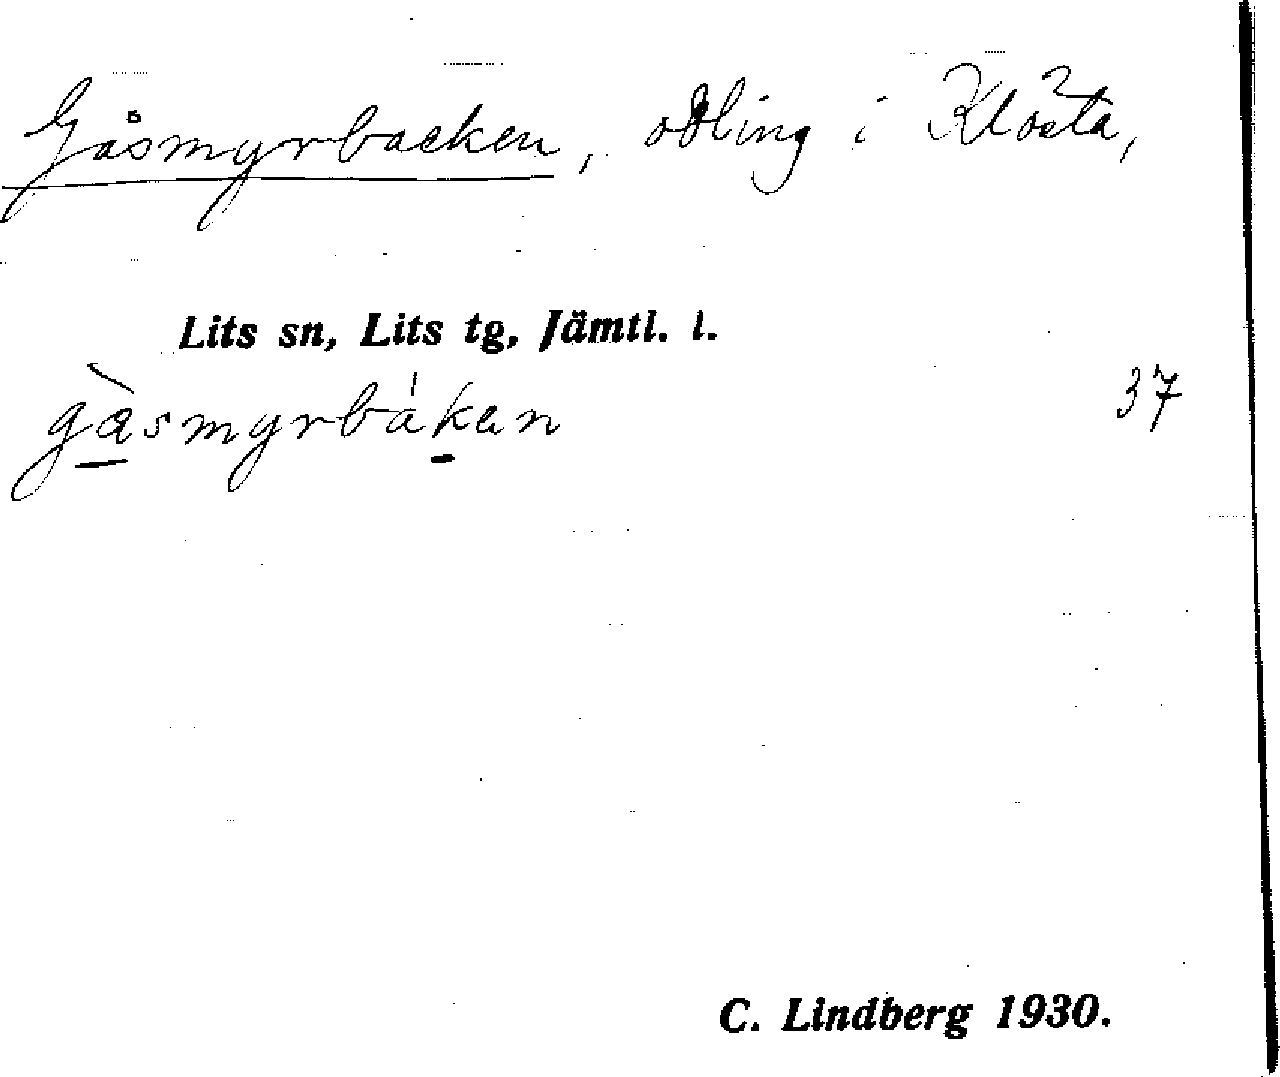 Gåsmyrbacken, odling i Klösta,
Lits sn, Lits tg, Jämtl. l.
gàsmyrbákan
37
C. Lindberg 1930.